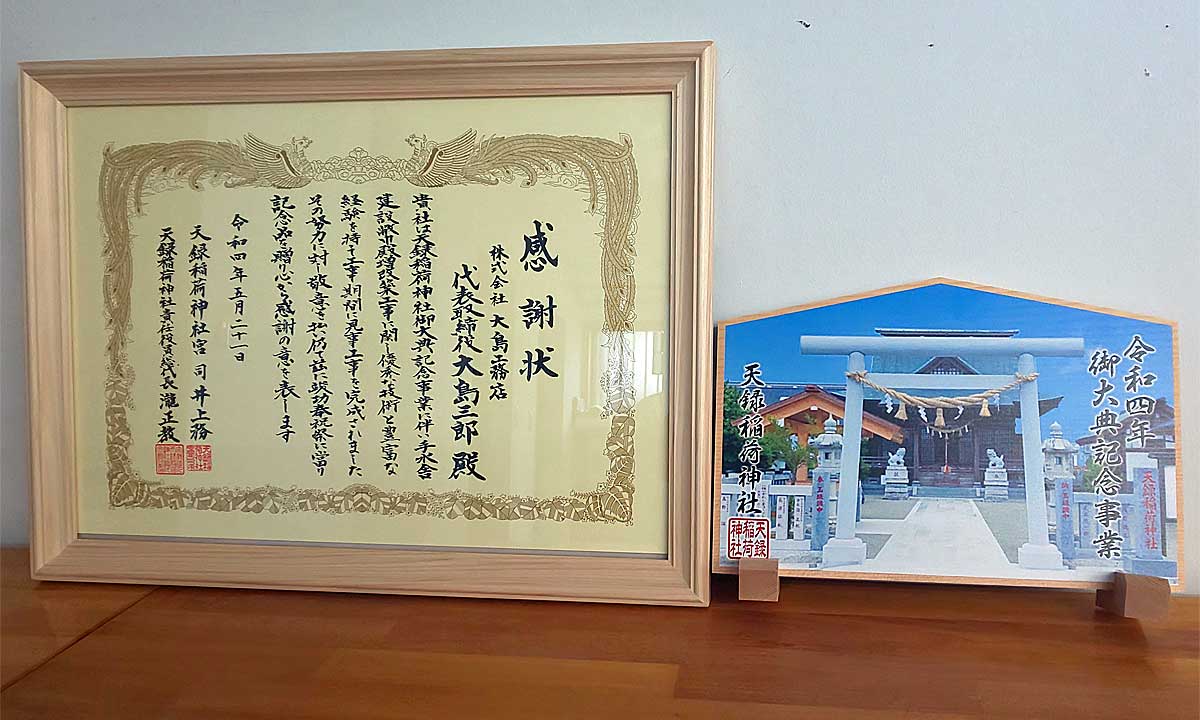 感謝状
株式会社 大島工務店
代表取締役 大島三郎 殿
貴社は天録稲荷神社御大典記念事業に伴い手水舎
建設幣殿増改築工事に関し優秀な技術と豊富な
経験を持って工事期間に見事工事を完成されました
その努力に対し敬意を払い仍て茲に竣功奉祝祭に当り
記念品を贈り心から感謝の意を表します
令和四年五月二十一日
天録稲荷神社宮司 井上務
天録稲荷神社責任役員総代長 瀧正哉
令和四年
御大典記念事業
天録稲荷神社
天録
稲荷
神社
天録稲荷神社